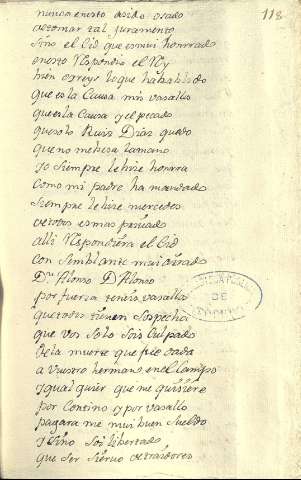 118
nunca en esto a sido osado
de tomar tal juramento
sino el Cid que es mui honrrado
en esto Respondio el Rey
bien os creyo lo que ha hablado
que es la Causa mis vasallos
que es la Causa y el pecado
que solo Ruis Dias quedo
que no me besa la mano
yo siempre le hize honrra
como mi padre ha mandado
siempre le hize mercedes
de todos es mas privado
alli Respondiera el Cid
con semblante mui ayrado
Dn. Alonso Dn. Alonso
por fuerza teneis vasallo
que todos tienen sospecha
que vos solo sois Culpado
de la muerte que fue dada
a vuestro hermano en el Campo
y qual quier que me quisiere
por Contino y por vasallo
pagara me mui buen sueldo
y sino soi libertado
que ser siervo de traidores
DE